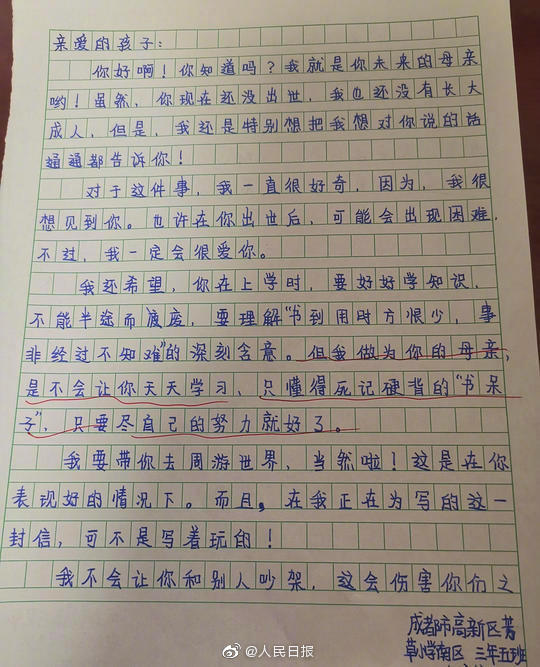 亲爱的孩子：
你好啊！你知道吗？我就是你未来的母亲
哟！虽然，你现在还没出世，我也还没有长大
成人，但是，我还是特别想把我想对你说的话
通通都告诉你！
对于这件事，我一直很好奇，因为，我很
想见到你。也许在你出世后，可能会出现困难，
不过，我一定会很爱你。
我还希望，你在上学时，要好好学知识，
不能半途而废废，要理解“书到用时方恨少，事
非经过不知难”的深刻含意。但我做为你的母亲，
是不会让你天天学习，只懂得死记硬背的“书呆
子”，只要尽自己的努力就好了。
我要带你去周游世界，当然啦！这是在你
表现好的情况下。而且，在我正在为写的这一
封信，可不是写着玩的！
我不会让你和别人吵架，这会伤害你们之
成都市高新区菁
草小学南区 三年五班
@人民日报